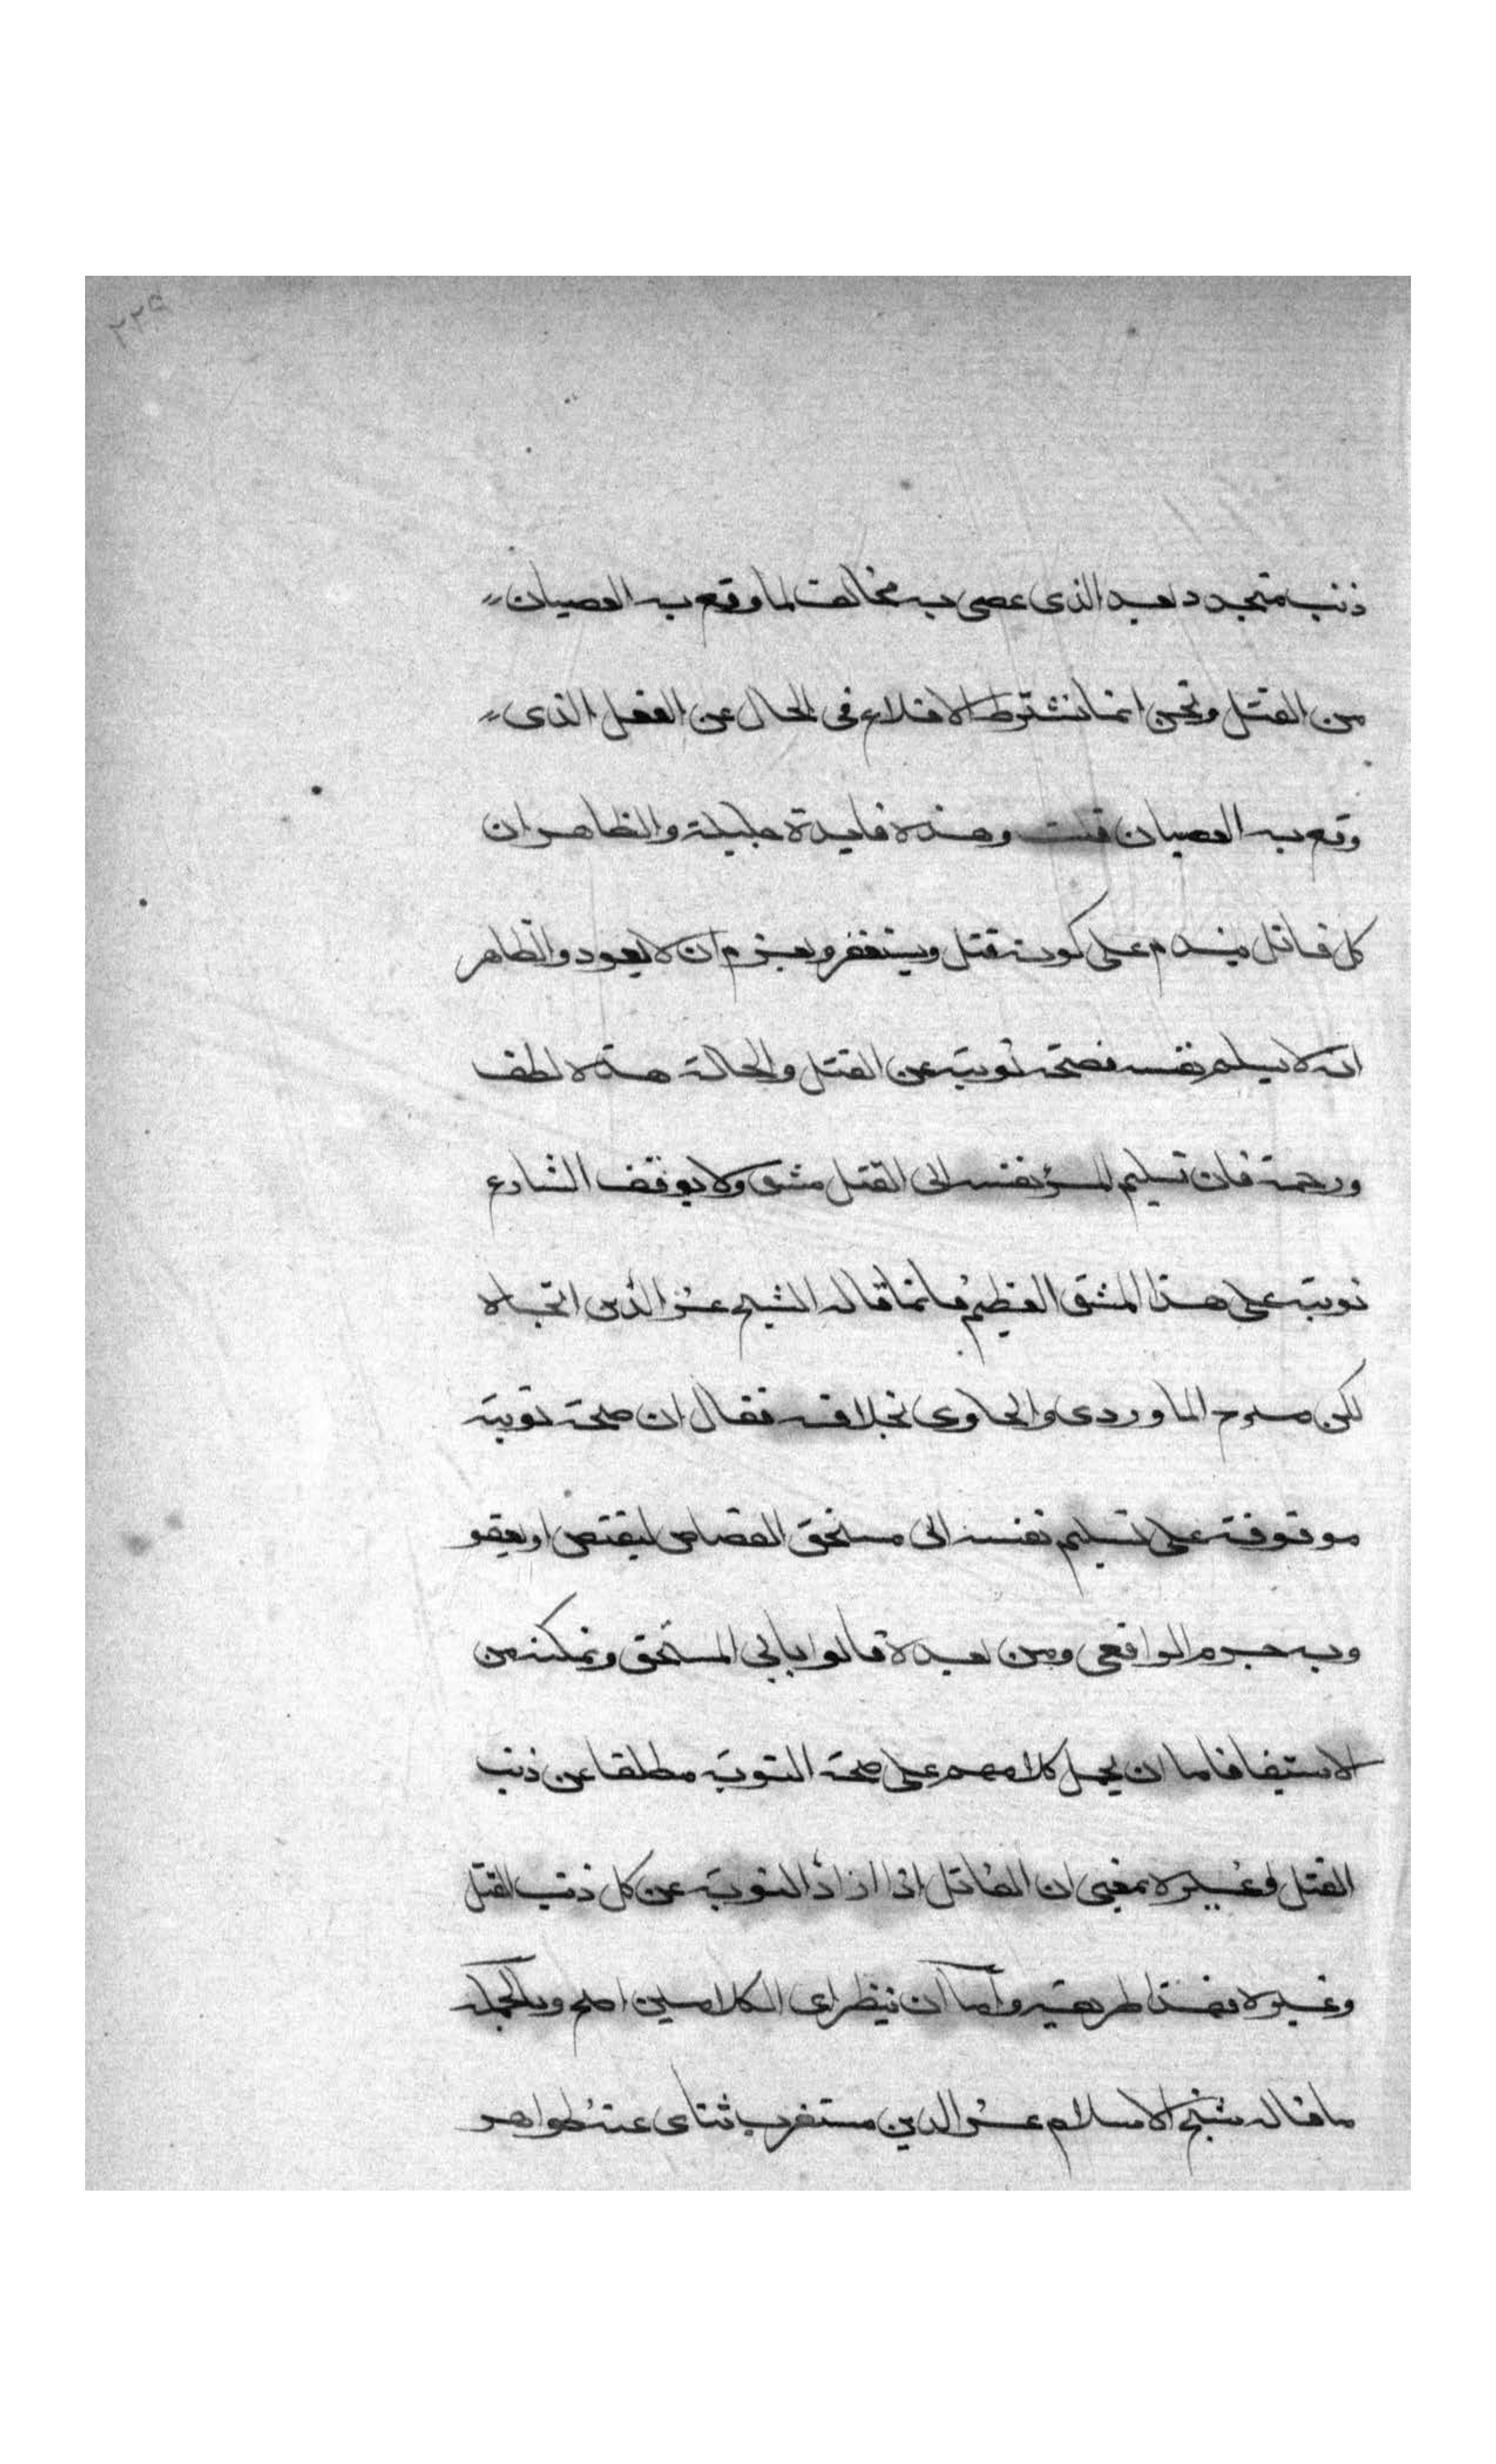 ٢٢٩
ذنب متجدد بعد الذى عصى به مخالف لما وقع به العصيان
من القتل ونحن انما نشترط الاقلاع فى الحال عن الفعل الذى
وقع به العصيان قلت وهذه فايدة جليلة والظاهر ان
كل قاتل يندم على كونه قتل ويستغفر ويعزم ان لا يعود والظاهر
انه لا يسلم نفسه فصحة توبته عن القتل والحالة هذه لطف
ورحمة فان تسليم المرء نفسه الى القتل مشق ولا يوقف الشارع
توبته على هذا المشق العظيم فلما قاله الشيخ عز الدين اتجاه
لكن صرح الماوردى والحاوى بخلافه فقال ان صحة توبته
موقوفة على تسليم نفسه الى مستحق القصاص ليقتص او يعفو
وبه جزم الرافعى ومن بعده قالوا ياتى المستحق ويمكنه من
الاستيفا فاما ان يحمل كلامهم على صحة التوبة مطلقا عن ذنب
القتل وغيره بمعنى ان القاتل اذا اراد التوبة عن كل ذنب القتل
وغيره فهذا طريقه واما ان ينظر اى الكلامين اصح وبالجملة
ما قاله شيخ الاسلام عز الدين مستغرب تناى عنه ظواهر